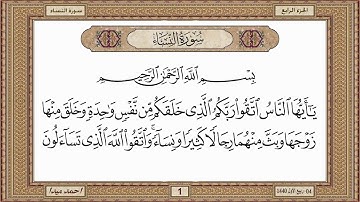 سورة النساء
الجزء الرابع
سُورَةُ النِّسَاءِ
بِسْمِ اللَّهِ الرَّحْمَٰنِ الرَّحِيمِ
يَا أَيُّهَا النَّاسُ اتَّقُوا رَبَّكُمُ الَّذِي خَلَقَكُم مِّن نَّفْسٍ وَاحِدَةٍ وَخَلَقَ مِنْهَا
زَوْجَهَا وَبَثَّ مِنْهُمَا رِجَالًا كَثِيرًا وَنِسَاءً ۚ وَاتَّقُوا اللَّهَ الَّذِي تَسَاءَلُونَ
احمد ميدا
1
04- ربيع الاول 1440